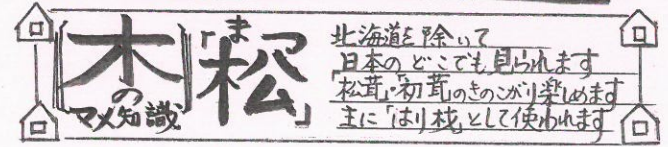 木のマメ知識
「松」
まつ
北海道を除いて
日本のどこでも見られます
「松茸」・初茸のきのこがり楽しめます
主に「はり材」として使われます